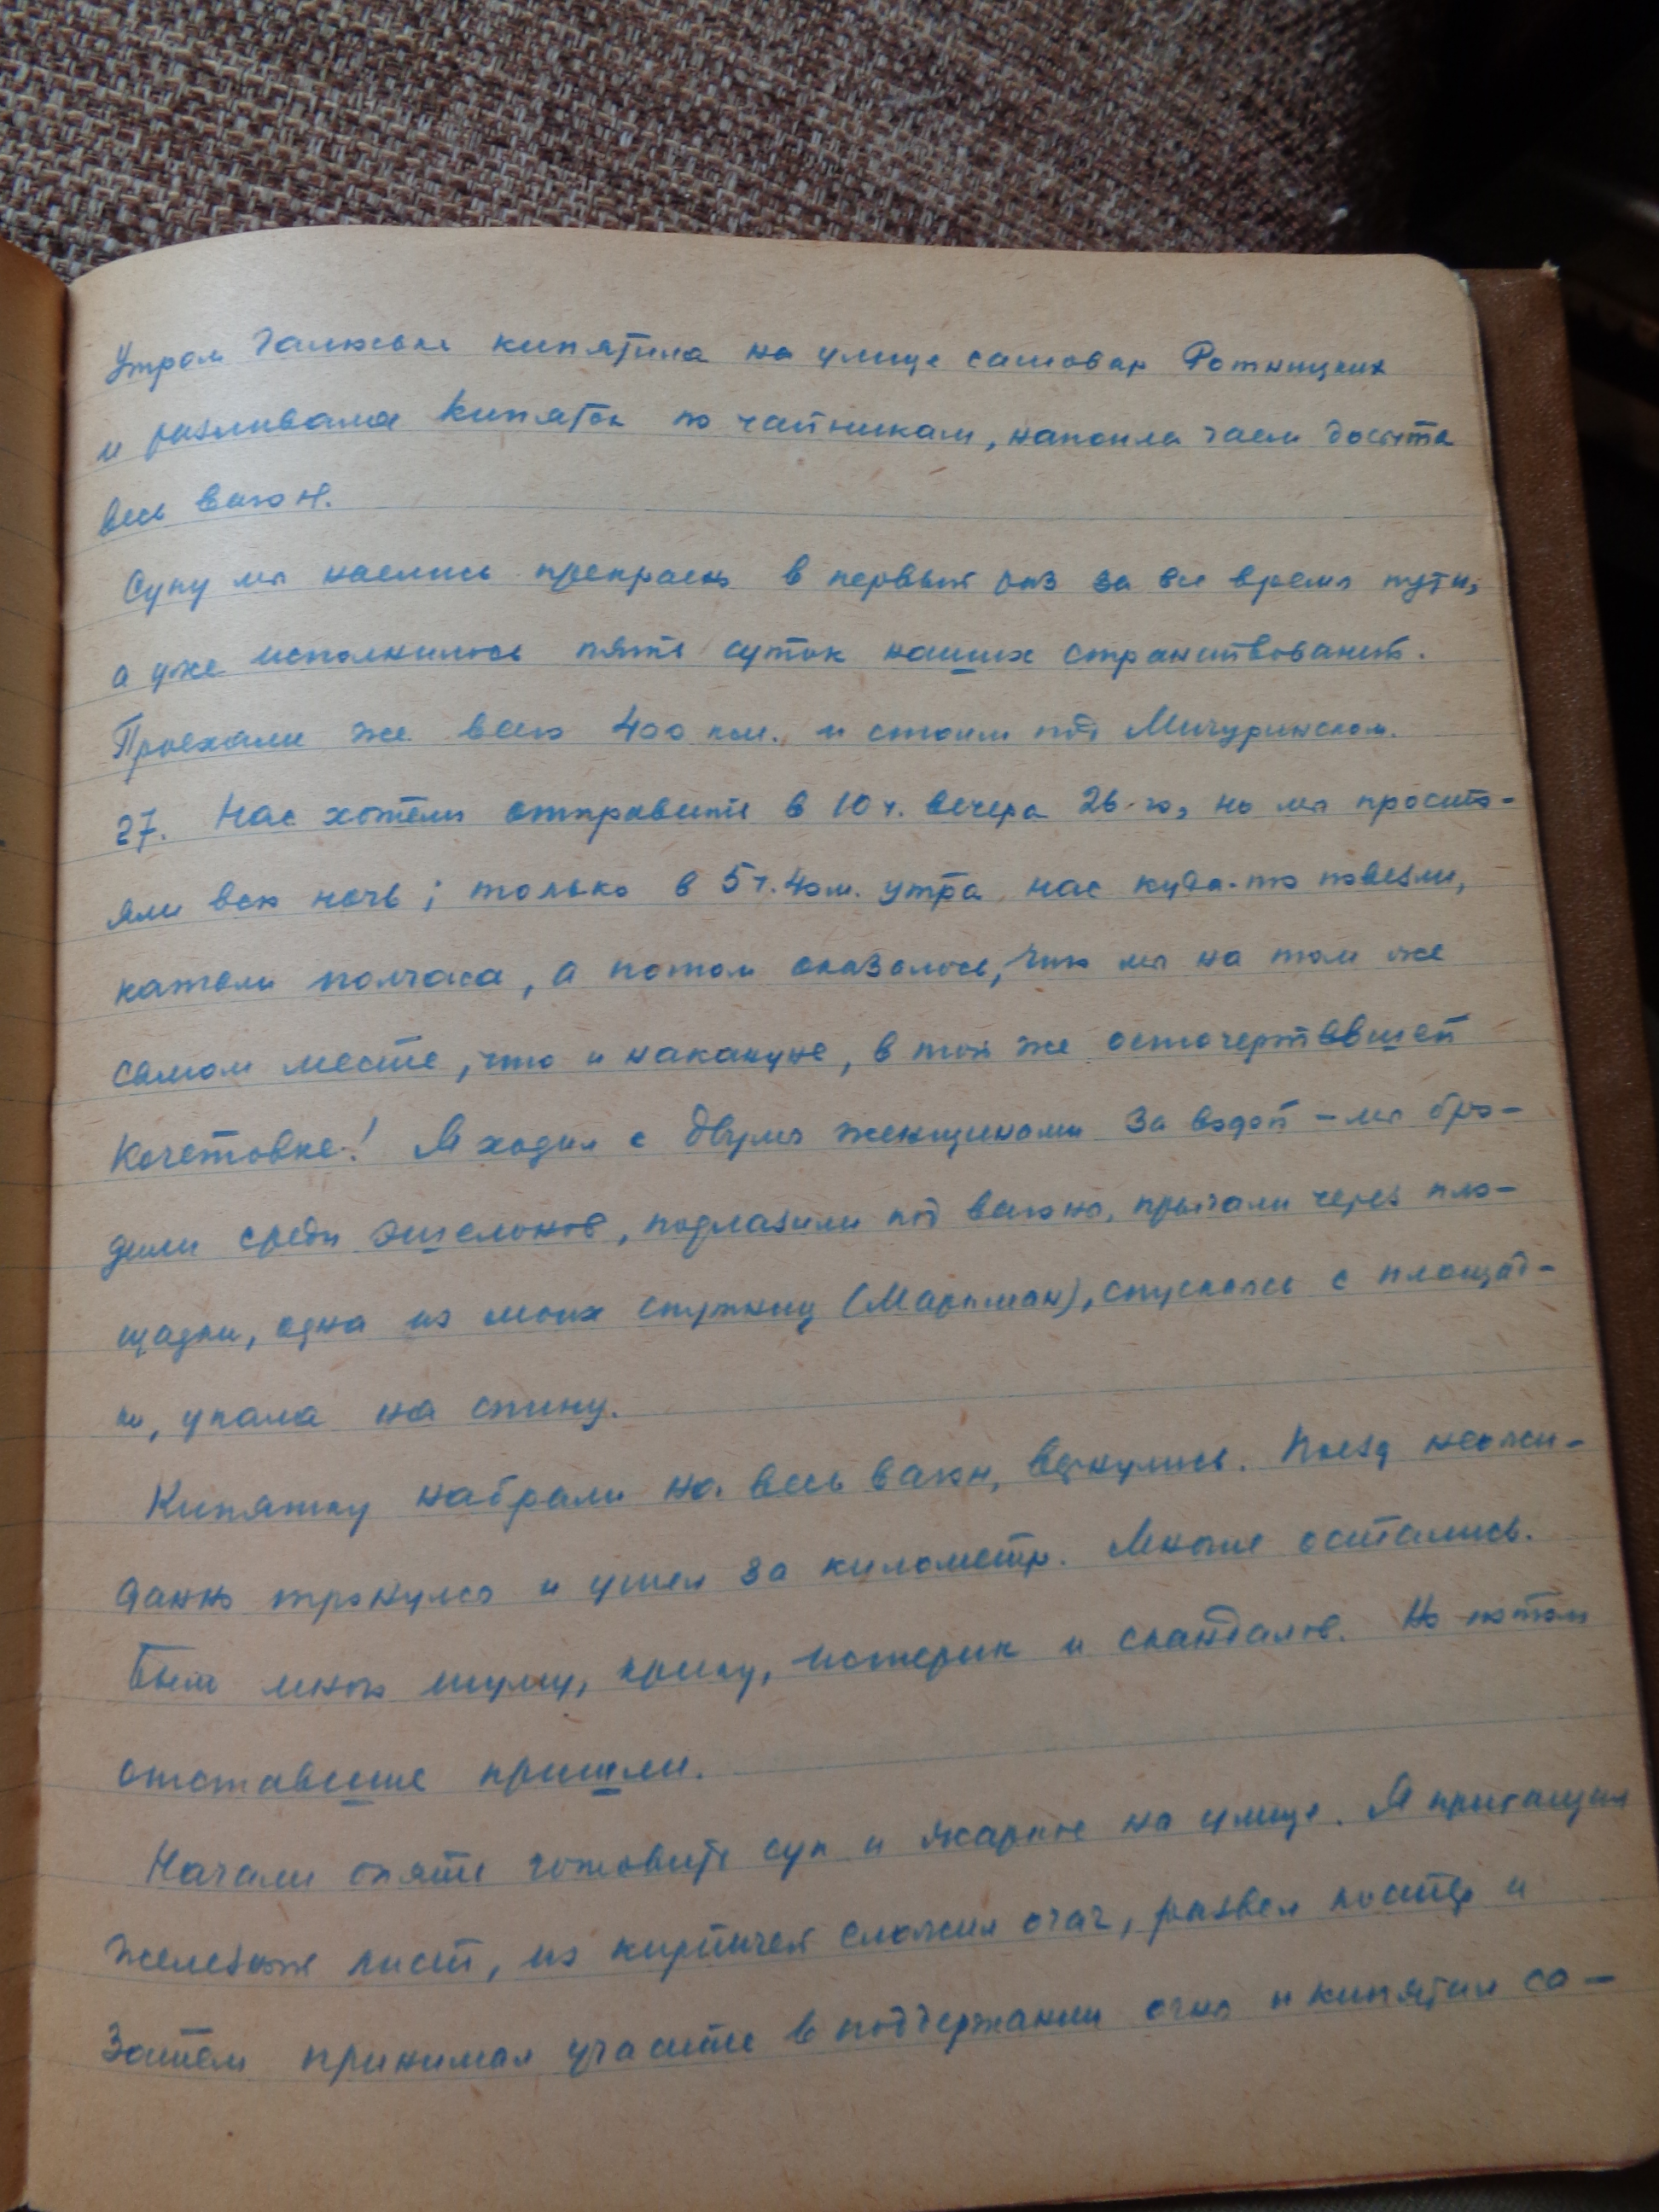 Утром Галюська кипятила на улице самовар Ротницких
и разливала кипяток по чайникам, напоила чаем досыта
весь вагон.
Супу мы наелись прекрасно в первый раз за все время пути,
а уже исполнилось пять суток наших странствований.
Проехали же всего 400 км. и стоим под Мичуринском.
27. Нас хотели отправить в 10 ч. вечера 26-го, но мы просто-
яли всю ночь; только в 5 ч. 40 м. утра нас куда-то повезли,
катали полчаса, а потом оказалось, что мы на том же
самом месте, что и накануне, в той же осточертевшей
Кочетовке! Я ходил с двумя женщинами за водой – мы бро-
дили среди эшелонов, подлазили под вагоны, прыгали через пло-
щадки, одна из моих спутниц (Маркман), спускаясь с площад-
ки, упала на спину.
Кипятку набрали на весь вагон, вернулись. Поезд неожи-
данно тронулся и ушел за километр. Многие остались.
Было много шуму, крику, истерик и скандалов. Но потом
отставшие пришли.
Начали опять готовить суп и жаркое на улице. Я притащил
железный лист, из кирпичей сложил очаг, развел костер и
затем принимал участие в поддержании огня и кипятил са-